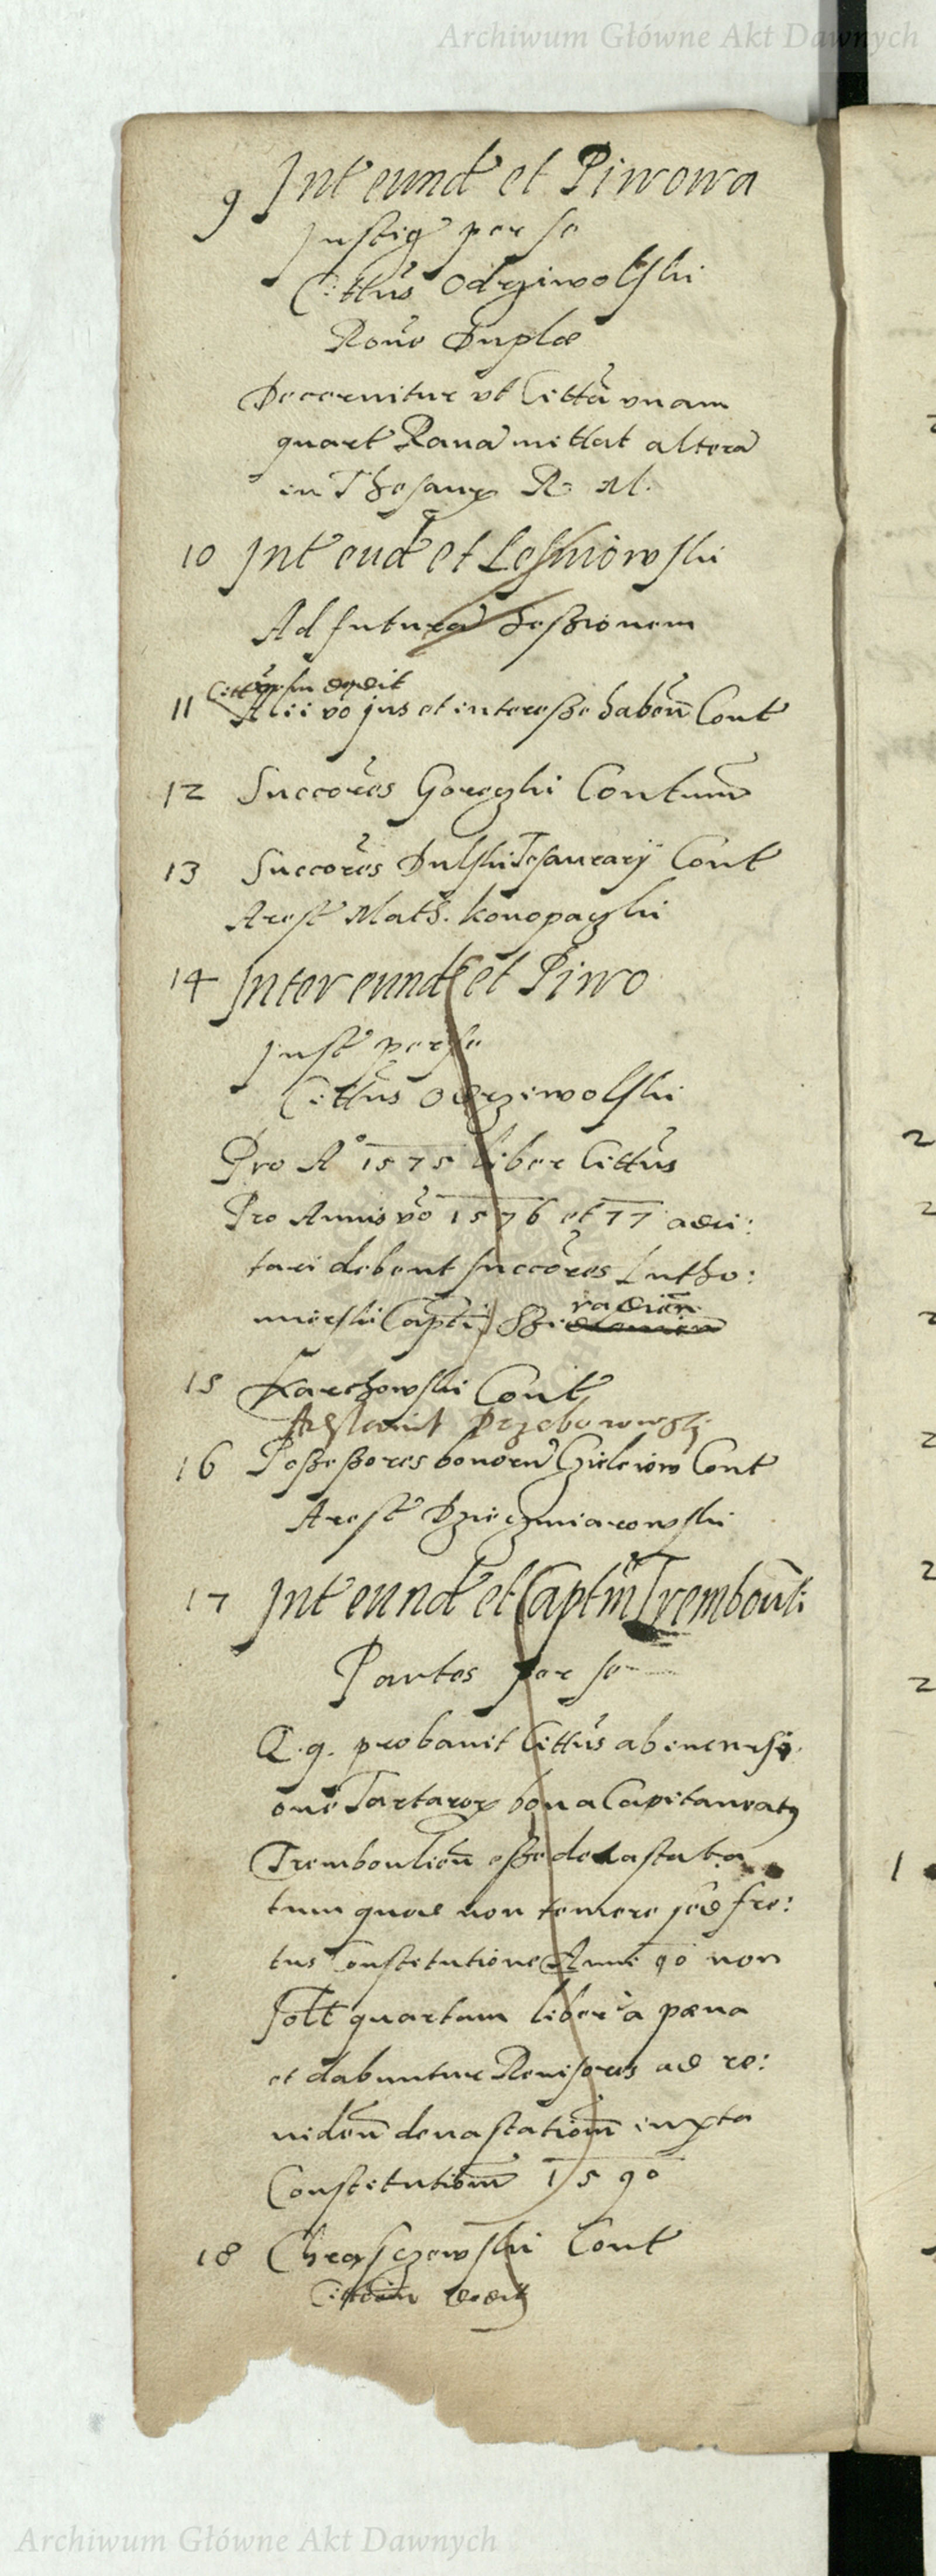 Archiwum Główne Akt Dawnych
9 Int eund et Piwowa
Instig per se
Cittus Odrziwolski
Rone Duplae
Decernitur ut Citta unam
quart Rana mittat altera
in Thesaur R. M.
10 Int eud et Lesniowski
Ad futura Sessionem
11 Alii vo jus et interesse haben Cont
12 Succores Goreczki Contum
13 Succores Dulski Tesaurarij Cont
Arest Math. Konopaczki
14 Inter eund et Piwo
Inst per se
Cittus Odrziwolski
Pro Ao 1575 liber Cittus
Pro Annis vo 1576 et 77 adci:
tari debent succores Lutho:
mirski Capti Sieradien
15 Karchowski Cont
16 Possessores bonoru Cont
Arest
17 Int eund et Captm Trembouli:
Partes per se
Q. g. probavit Cittus ab incursi
one Tartaror bona Capitaneatus
Tremboulien esse devastata
tum quod non temere sed fre:
tus Constitutione Anni 90 non
solt quartam liber a paena
et dabuntur Revisores ad re:
viden devastationm iuxta
Constitutionm 1590
18 Chrasczewski Cont
Archiwum Główne Akt Dawnych